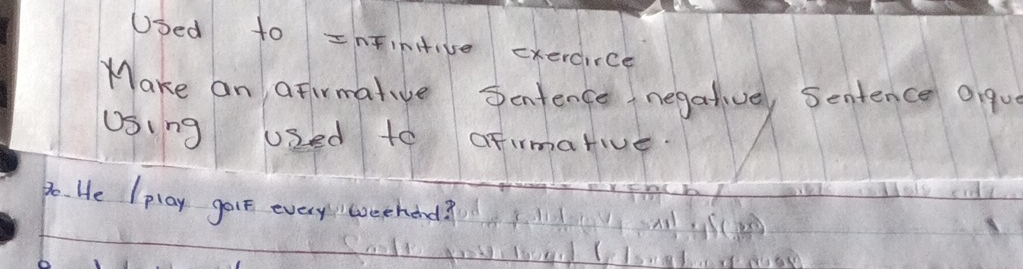 Used to Infinitive exercirce
Make an afirmative Sentence, negative, Sentence
Using used to afirmative.
He / play golf every weekend?